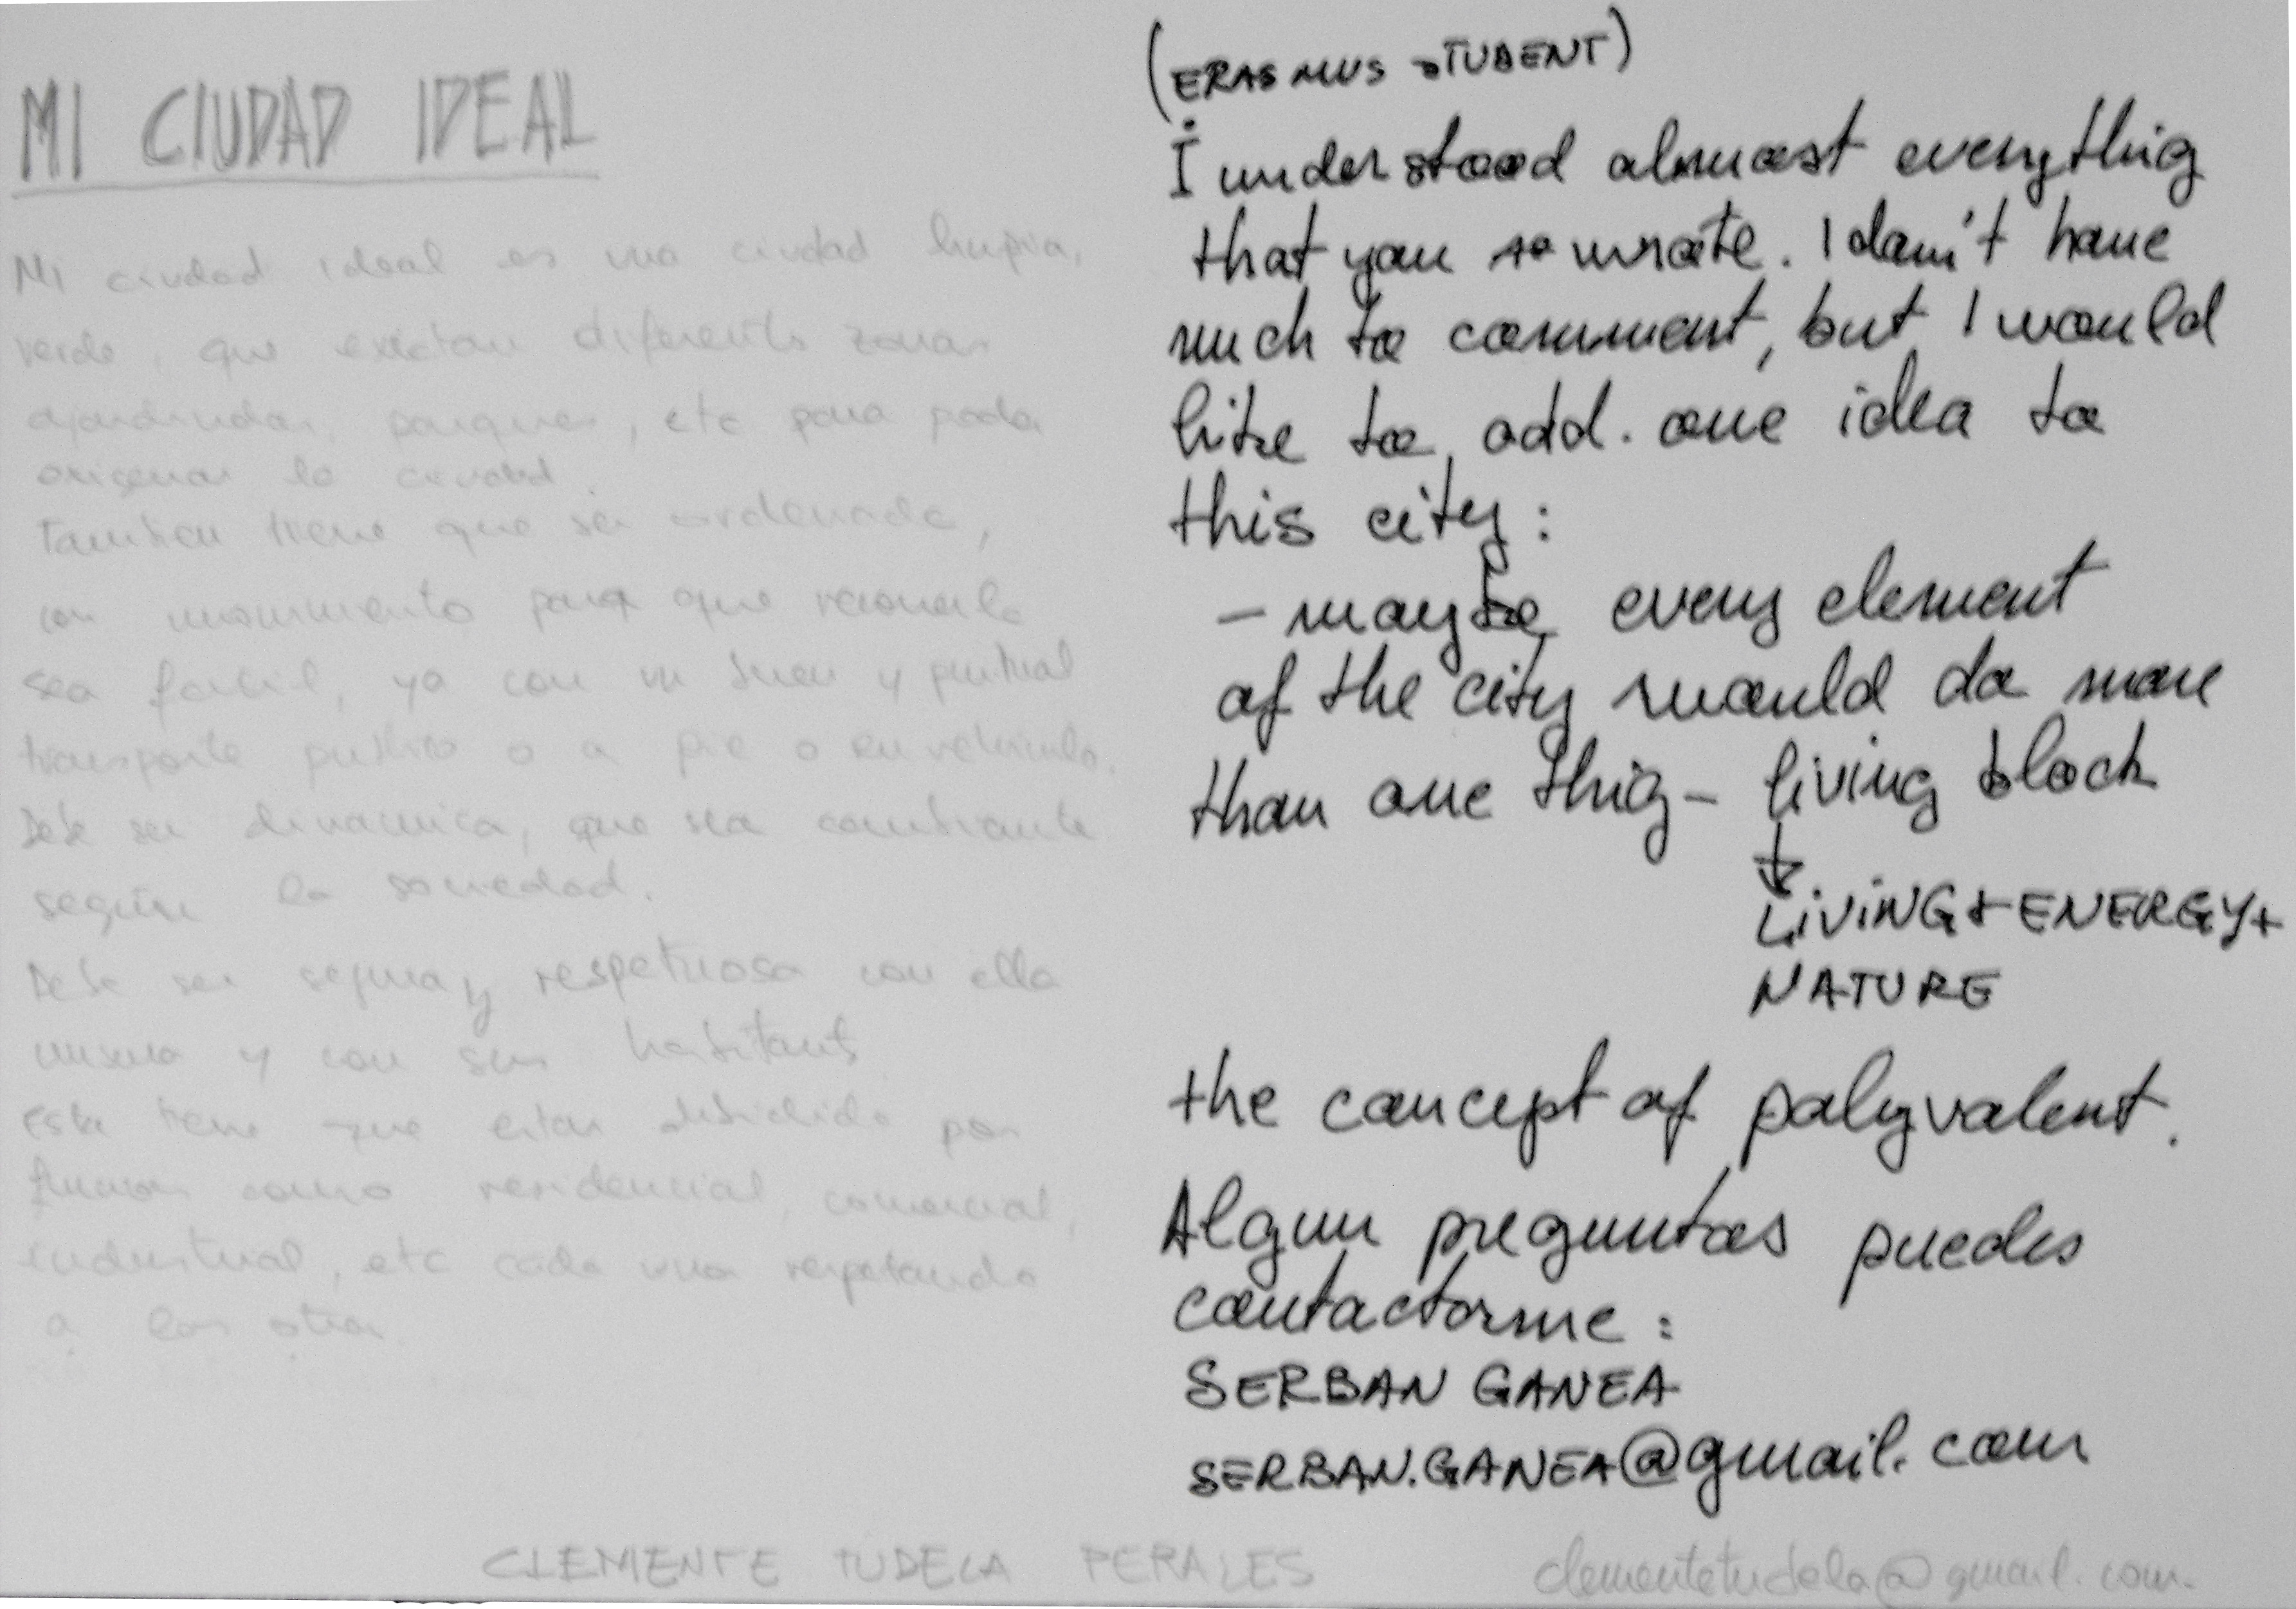 MI CIUDAD IDEAL
Mi ciudad ideal es una ciudad limpia,
verde, que existan diferents zonas
ajardinadas, parques, etc para poder
oxigenar la ciudad.
Tambien tiene que ser ordenada,
con movimiento para que recorrerla
sea facil, ya con un buen y puntual
transporte publico o a pie o en vehiculo.
Debe ser dinamica, que sea cambiante
según la sociedad.
Debe ser segura y respetuosa con ella
misma y con sus habitants
Esta tiene que estar dividida por
como residencial, comercial,
industrial, etc cada una respetando
a las otras.
(ERASMUS STUDENT)
I understood almost everythig
that you wrote. I don't have
much to comment, but I would
like to add. one idea to
this city:
- maybe every element
of the city would do more
than one thig - living block
↓
LiViNG + ENERGY +
NATURE
the concept of polyvalent.
Algun preguntas puedes
contactarme:
SERBAN GANEA
SERBAN.GANEA@gmail.com
CLEMENTE TUDELA PERALES clementetudela@gmail.com.